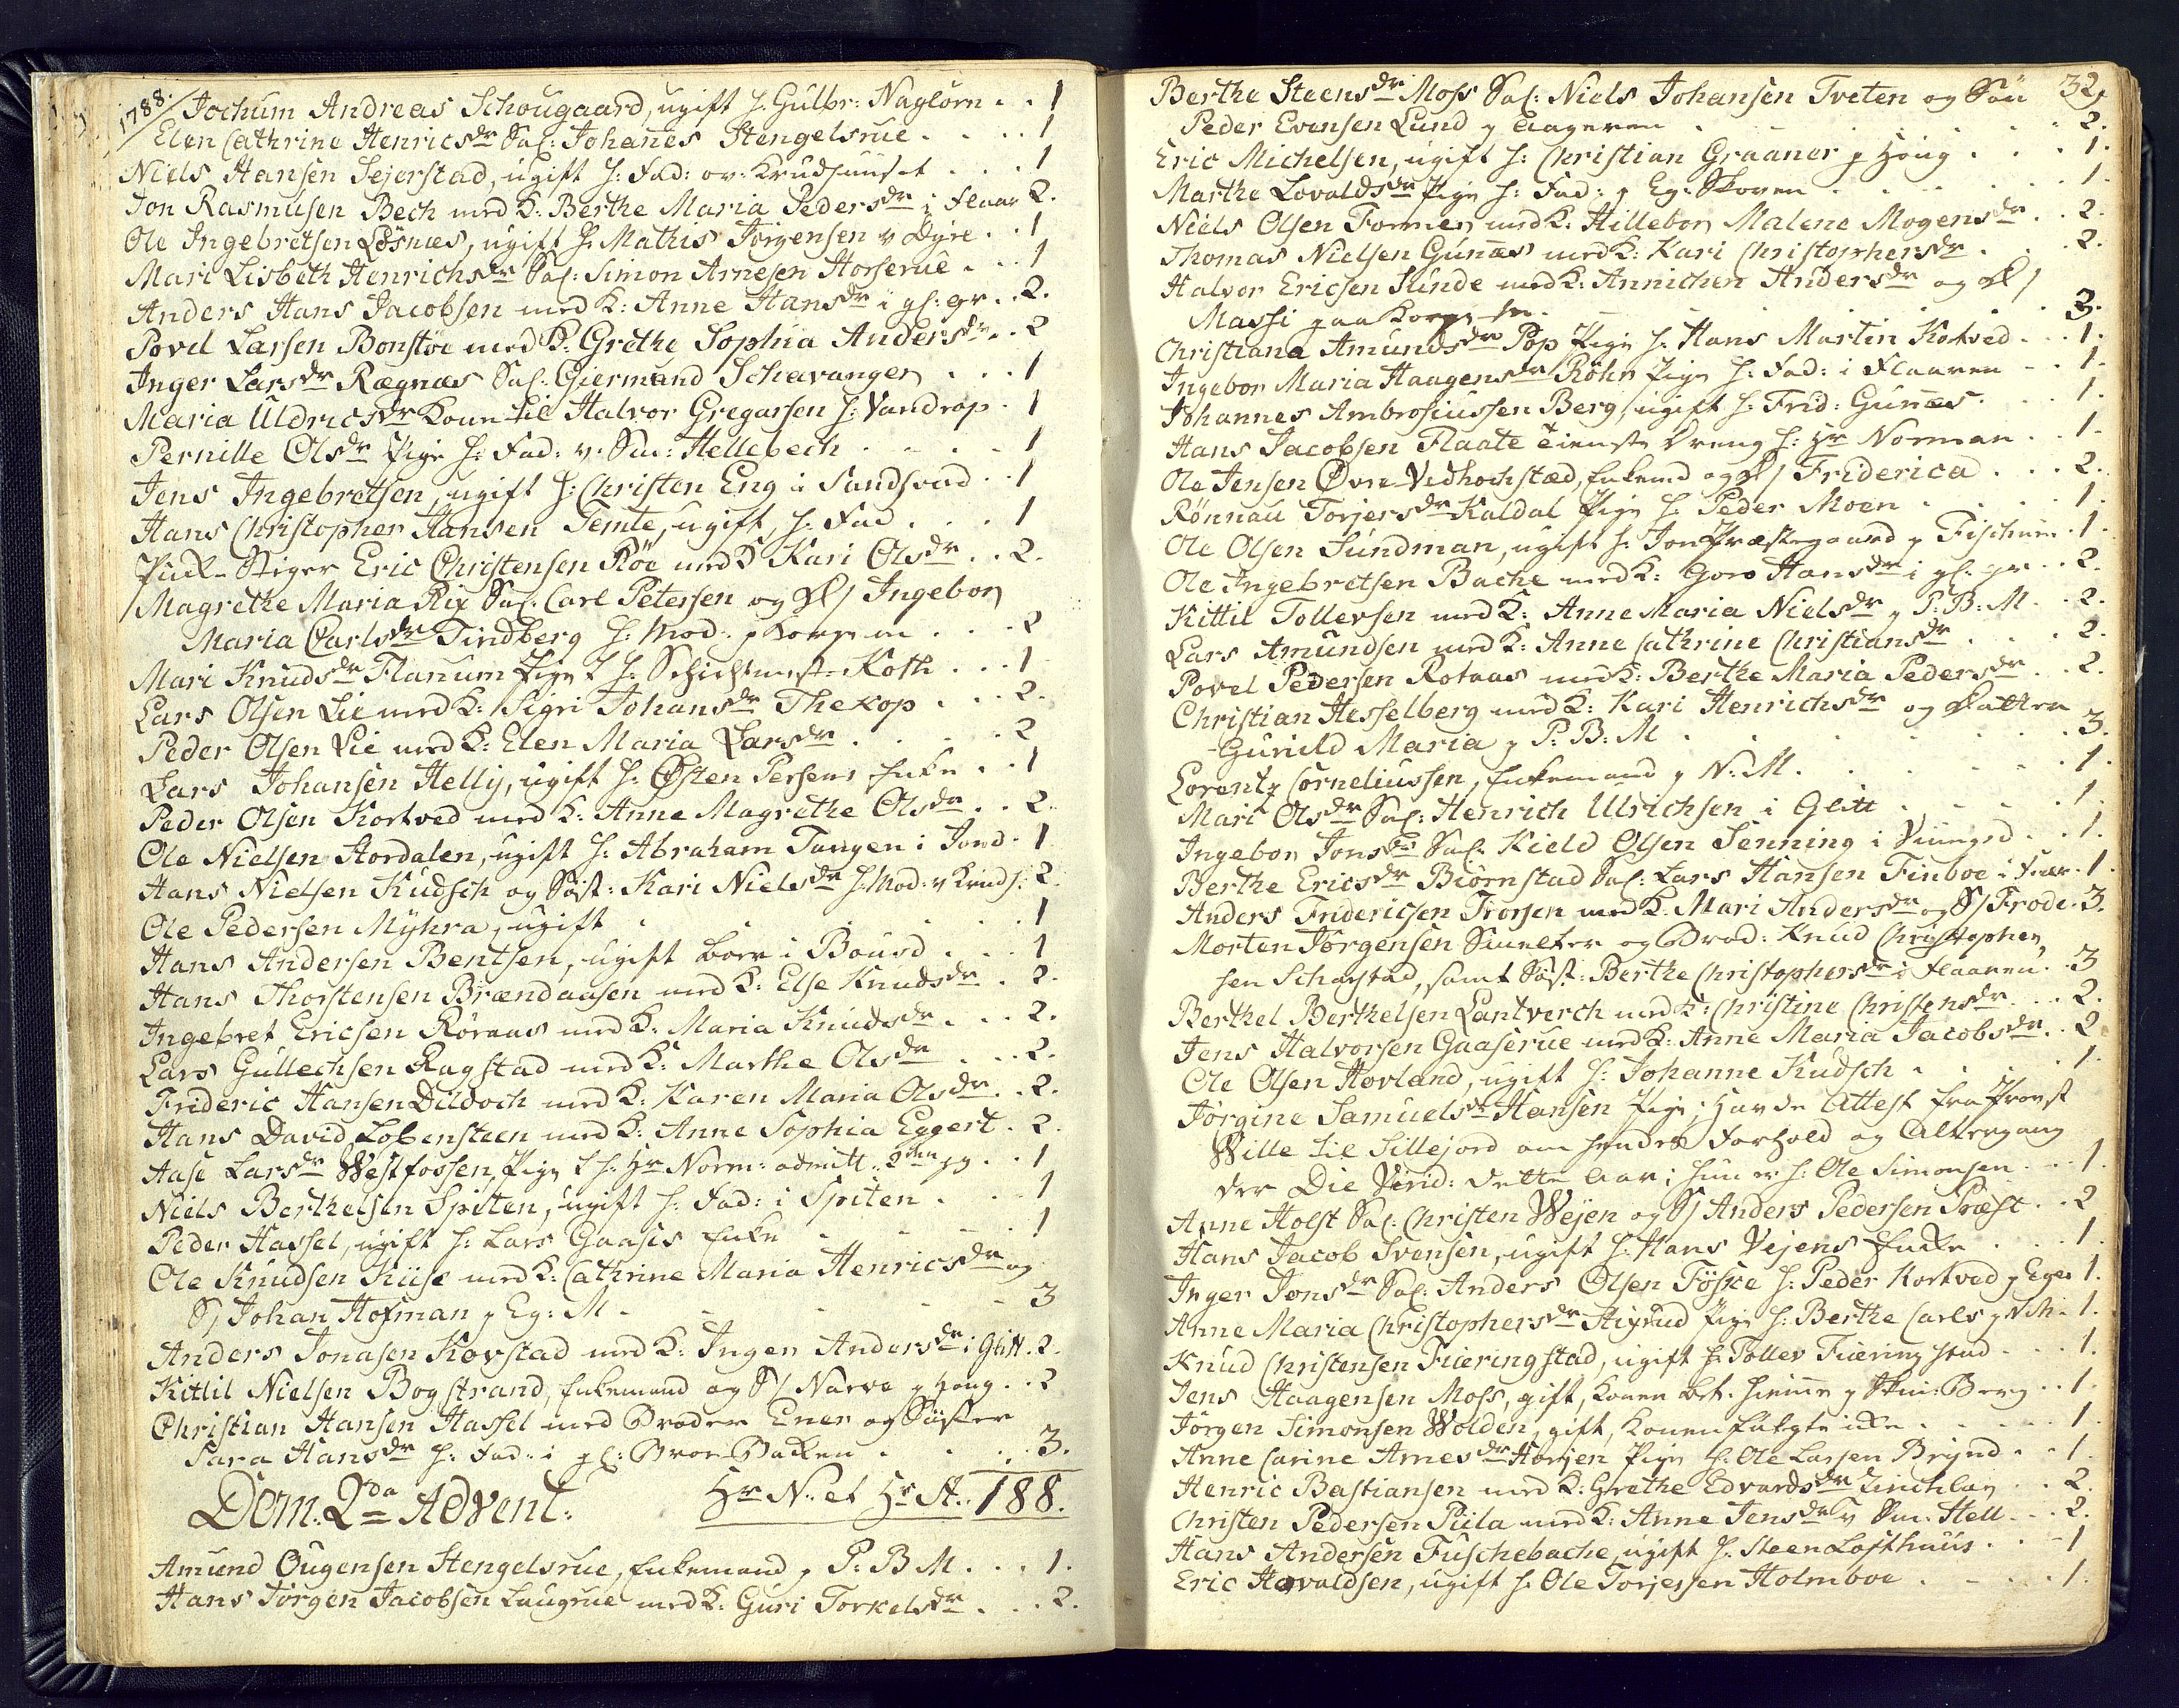 1788.
Jochum Andreas Schougaard, ugift h. Gulbr: Naglorn . . 1
Elen Cathrine Henricsdr Sal: Johanes Stengelsrue . . . . 1
Niels Hansen Sejerstad, ugift h: Fad: ov: Krudhuuset . . . 1
Jon Rasmusen Bech med K: Berthe Maria Pedersdr i Flaar 2.
Ole Ingebretsen Løsnæs, ugift h. Mathis Jørgensen v Dyre . . 1
Mari Lisbeth Henrichsdr Sal: Simon Arnesen Horserue . . . 1
Anders Hans Jacobsen med K: Anne Hansdr i gl: gr . . 2.
Povel Larsen Bonstøe med K: Grethe Sophia Andersdr . . 2
Inger Larsdr Rægnæs Sal: Giermand Schavangen . . . 1
Maria Uldricsdr Kone til Halvor Gregarsen h: Vandrop . 1
Pernille Olsdr Pige h: Fad: v. Sm: Hellebech . . . . 1
Jens Ingebretsen, ugift h: Christen Eng i Sandsvad . . 1
Hans Christopher Hansen Temte, ugift, h. Fad . . . 1
Puke Stiger Eric Christensen Röe med K Kari Olsdr . . 2.
Magrethe Maria Rix Sal: Carl Petersen og D/ Ingebor
Maria Carlsdr Tindberg h: Mod: p Korpem . . . 2
Mari Knudsdr Flanum Pige h: Schichtmest: Koth . . . 1
Lars Olsen Lie med K: Sigri Johansdr Thexop . . 2.
Peder Olsen Lie med K: Elen Maria Larsdr . . . . 2
Lars Johansen Helly, ugift h: Østen Persens Enke . . 1
Peder Olsen Kortved med K: Anne Magrethe Olsdr . . 2.
Ole Nielsen Hordalen, ugift h: Abraham Tangen i Jond . 1
Hans Nielsen Kudsch og Søst: Kari Nielsdr h: Mod: v Krudh: 2.
Ole Pedersen Myhra, ugift . . . . . 1
Hans Andersen Bentsen, ugift boer i Boursd . . . 1
Hans Thorstensen Brændaasen med K: Else Knudsdr . 2.
Ingebret Ericsen Röraas med K: Maria Knudsdr . . . 2.
Lars Gullechsen Ragstad med K: Marthe Olsdr . . . 2.
Frideric Hansen Dildoch med K: Karen Maria Olsdr . . 2.
Hans David Lobensteen med K: Anne Sophia Eggert . 2.
Aase Larsdr Westfossen, Pige h: Hr Norm: admitt: 2den gg . . 1
Niels Berthelsen Spiten, ugift h: Fad: i Spiten . . . 1
Peder Hassel, ugift h: Lars Gaases Enke . . . . 1
Ole Knudsen Kiise med K: Cathrine Maria Henricsdr og
S/ Johan Hofman p Eg: M . . . . . 3
Anders Jonasen Korstad med K: Inger Andersdr i Glitt . 2.
Kittil Nielsen Bogstrand, Enkemand og S/ Narve p Houg . . 2
Christian Hansen Hassel med Broder Ener og Søster
Sara Hansdr h: Fad: i gl: Broe Bakken . . . . 3.
Dom. 2da Advent: Hr N. et Hr St. 188.
Amund Ougensen Stengelsrue, Enkemand p P: B M . . . 1.
Hans Jörgen Jacobsen Laugrue med K: Guri Torkelsdr . . . 2.
32.
Berthe Steensdr Moss Sal: Niels Johansen Tveten og Søn
Peder Evensen Lund p Aageren . . . . . 2.
Eric Michelsen, ugift h: Christian Graaner p Houg . . . 1.
Marthe Lovaldsdr Pige h: Fad: p Eg: Skoven . . . . 1.
Niels Olsen Former med K: Hillebor Malene Mogensdr . . 2.
Thomas Nielsen Gunæs med K: Kari Christophersdr . . . 2.
Halvor Ericsen Kinde med K: Annichen Andersdr og D/
Massi paa Korpem . . . . . 3.
Christiana Amundsdr Pop Pige h. Hans Martin Kotved . . . 1.
Ingebor Maria Haagensdr Röhr Pige h: Fad: i Flaaren . . 1.
Johannes Ambrosiussen Berg, ugift h. Frid: Gunæs . . . 1.
Hans Jacobsen Flaate tieneste Dreng h: Hr Norman . . 1.
Ole Jensen Øvre Vedhochstæd, Enkemd og D/ Friderica . . . 2.
Rönnau Torjersdr Kaldal Pige h. Peder Moen . . . . 1.
Ole Olsen Sundman, ugift h: Jon Præstegaard p Fischum . 1.
Ole Ingebretsen Bache med K: Goro Hansdr i gl: gr . . 2.
Kittil Tollevsen med K: Anne Maria Nielsdr p P: B: M . . 2.
Lars Amundsen med K: Anne Cathrine Christiansdr . . . 2.
Povel Pedersen Rotaas med K: Berthe Maria Pedersdr . . 2.
Christian Hesselberg med K: Kari Henrichsdr og Datter
Gunild Maria p P: B: M . . . . . 3.
Lorentz Corneliussen, Enkemand p N: M . . . . 1.
Mari Olsdr Sal: Henrich Ulrichsen i Glitt . . . . 1.
Ingebor Jonsdr Sal: Kield Olsen Senning i Viinged . . 1.
Berthe Ericsdr Biörnstad Sal: Lars Hansen Finboe i Fnær . 1.
Anders Fridericsen Trorsen med K. Mari Andersdr og S/ Frode . 3.
Morten Jörgensen Smelter og Brod: Knud Christopher
sen Scharstad, samt Søst: Berthe Christophersdr i Flaaren . . 3
Berthel Berthelsen Lantverch med K: Christine Christensdr . . . 2.
Jens Halvorsen Gaaserue med K: Anne Maria Jacobsdr . . 2
Ole Olsen Hovland, ugift h: Johanne Kudsch . . . . 1.
Jørgine Samuelsdr Hansen Pige; havde Attest fra Provst
Wille til Sillejord om hendes Forhold og Altergang
der Die Virid: dette Aar; hun er h: Ole Simonsen . . . 1.
Anne Holst Sal: Christen Wejen og S/ Anders Pedersen Præst . . 2
Hans Jacob Svensen, ugift h: Hans Vejens Encke . . . 1.
Inger Jonsdr Sal: Anders Olsen Föske h: Peder Kortved p Eger 1.
Anne Maria Christophersdr Higrud Pige h: Berthe Carls p N M . 1.
Knud Christensen Fiæringstad, ugift h: Tollev Fiæringstad . . . 1.
Jens Haagensen Moss, gift, Konen bet: hieme p Skui: Berg . . 1.
Jörgen Simonsen Wolden, gift, Konen fulgte icke . . . . 1.
Anne Carine Arnesdr Horsjen Pige h. Ole Larsen Brynd . . 1.
Henric Bastiansen med K: Grethe Edvardsdr Zinchlag . . 2.
Christen Pedersen Piila med K: Anne Jensdr v Sm: Hell . . . 2.
Hans Andersen Fuschebache, ugift h. Steen Lofthuus . . . 1
Eric Havaldsen, ugift h: Ole Torjessen Holmboe . . . . 1.